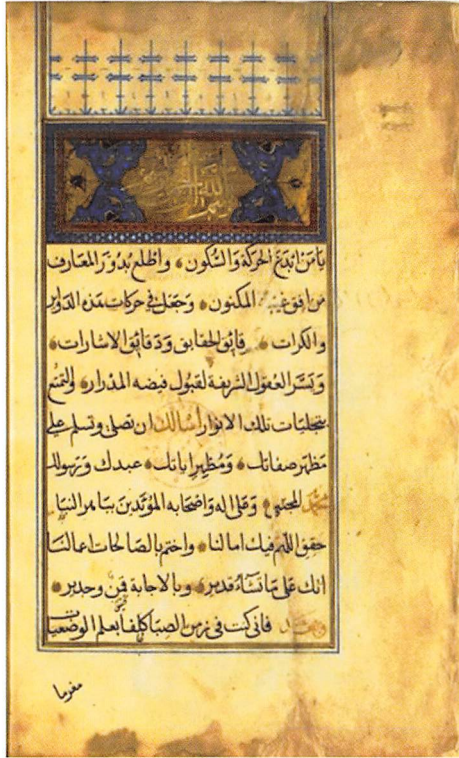 بسم الله
يا من ابدع الحركة والسكون واطلع بدور المعارف
من افق غيبه المكنون وجعل في حركات هذه الدواير
والكرات قائق الحقايق ودقائق الاشارات
ويسر العقول الشريفة لقبول فيضه المدرار والتمتع
بتجليات تلك الانوار أسألك ان تصلى وتسلم على
مظهر صفاتك ومظهر اياتك عبدك ورسولك
محمد المجتبى وعلى اله واصحابه المؤيدين
حقق اللهم فيك امالنا واختم بالصالحات اعمالنا
انك على ما تشاء قدير وبالاجابة قمن وجدير
وبعد فانى كنت فى زمن الصبا كلفا بعلم الوضعيات
مغرما